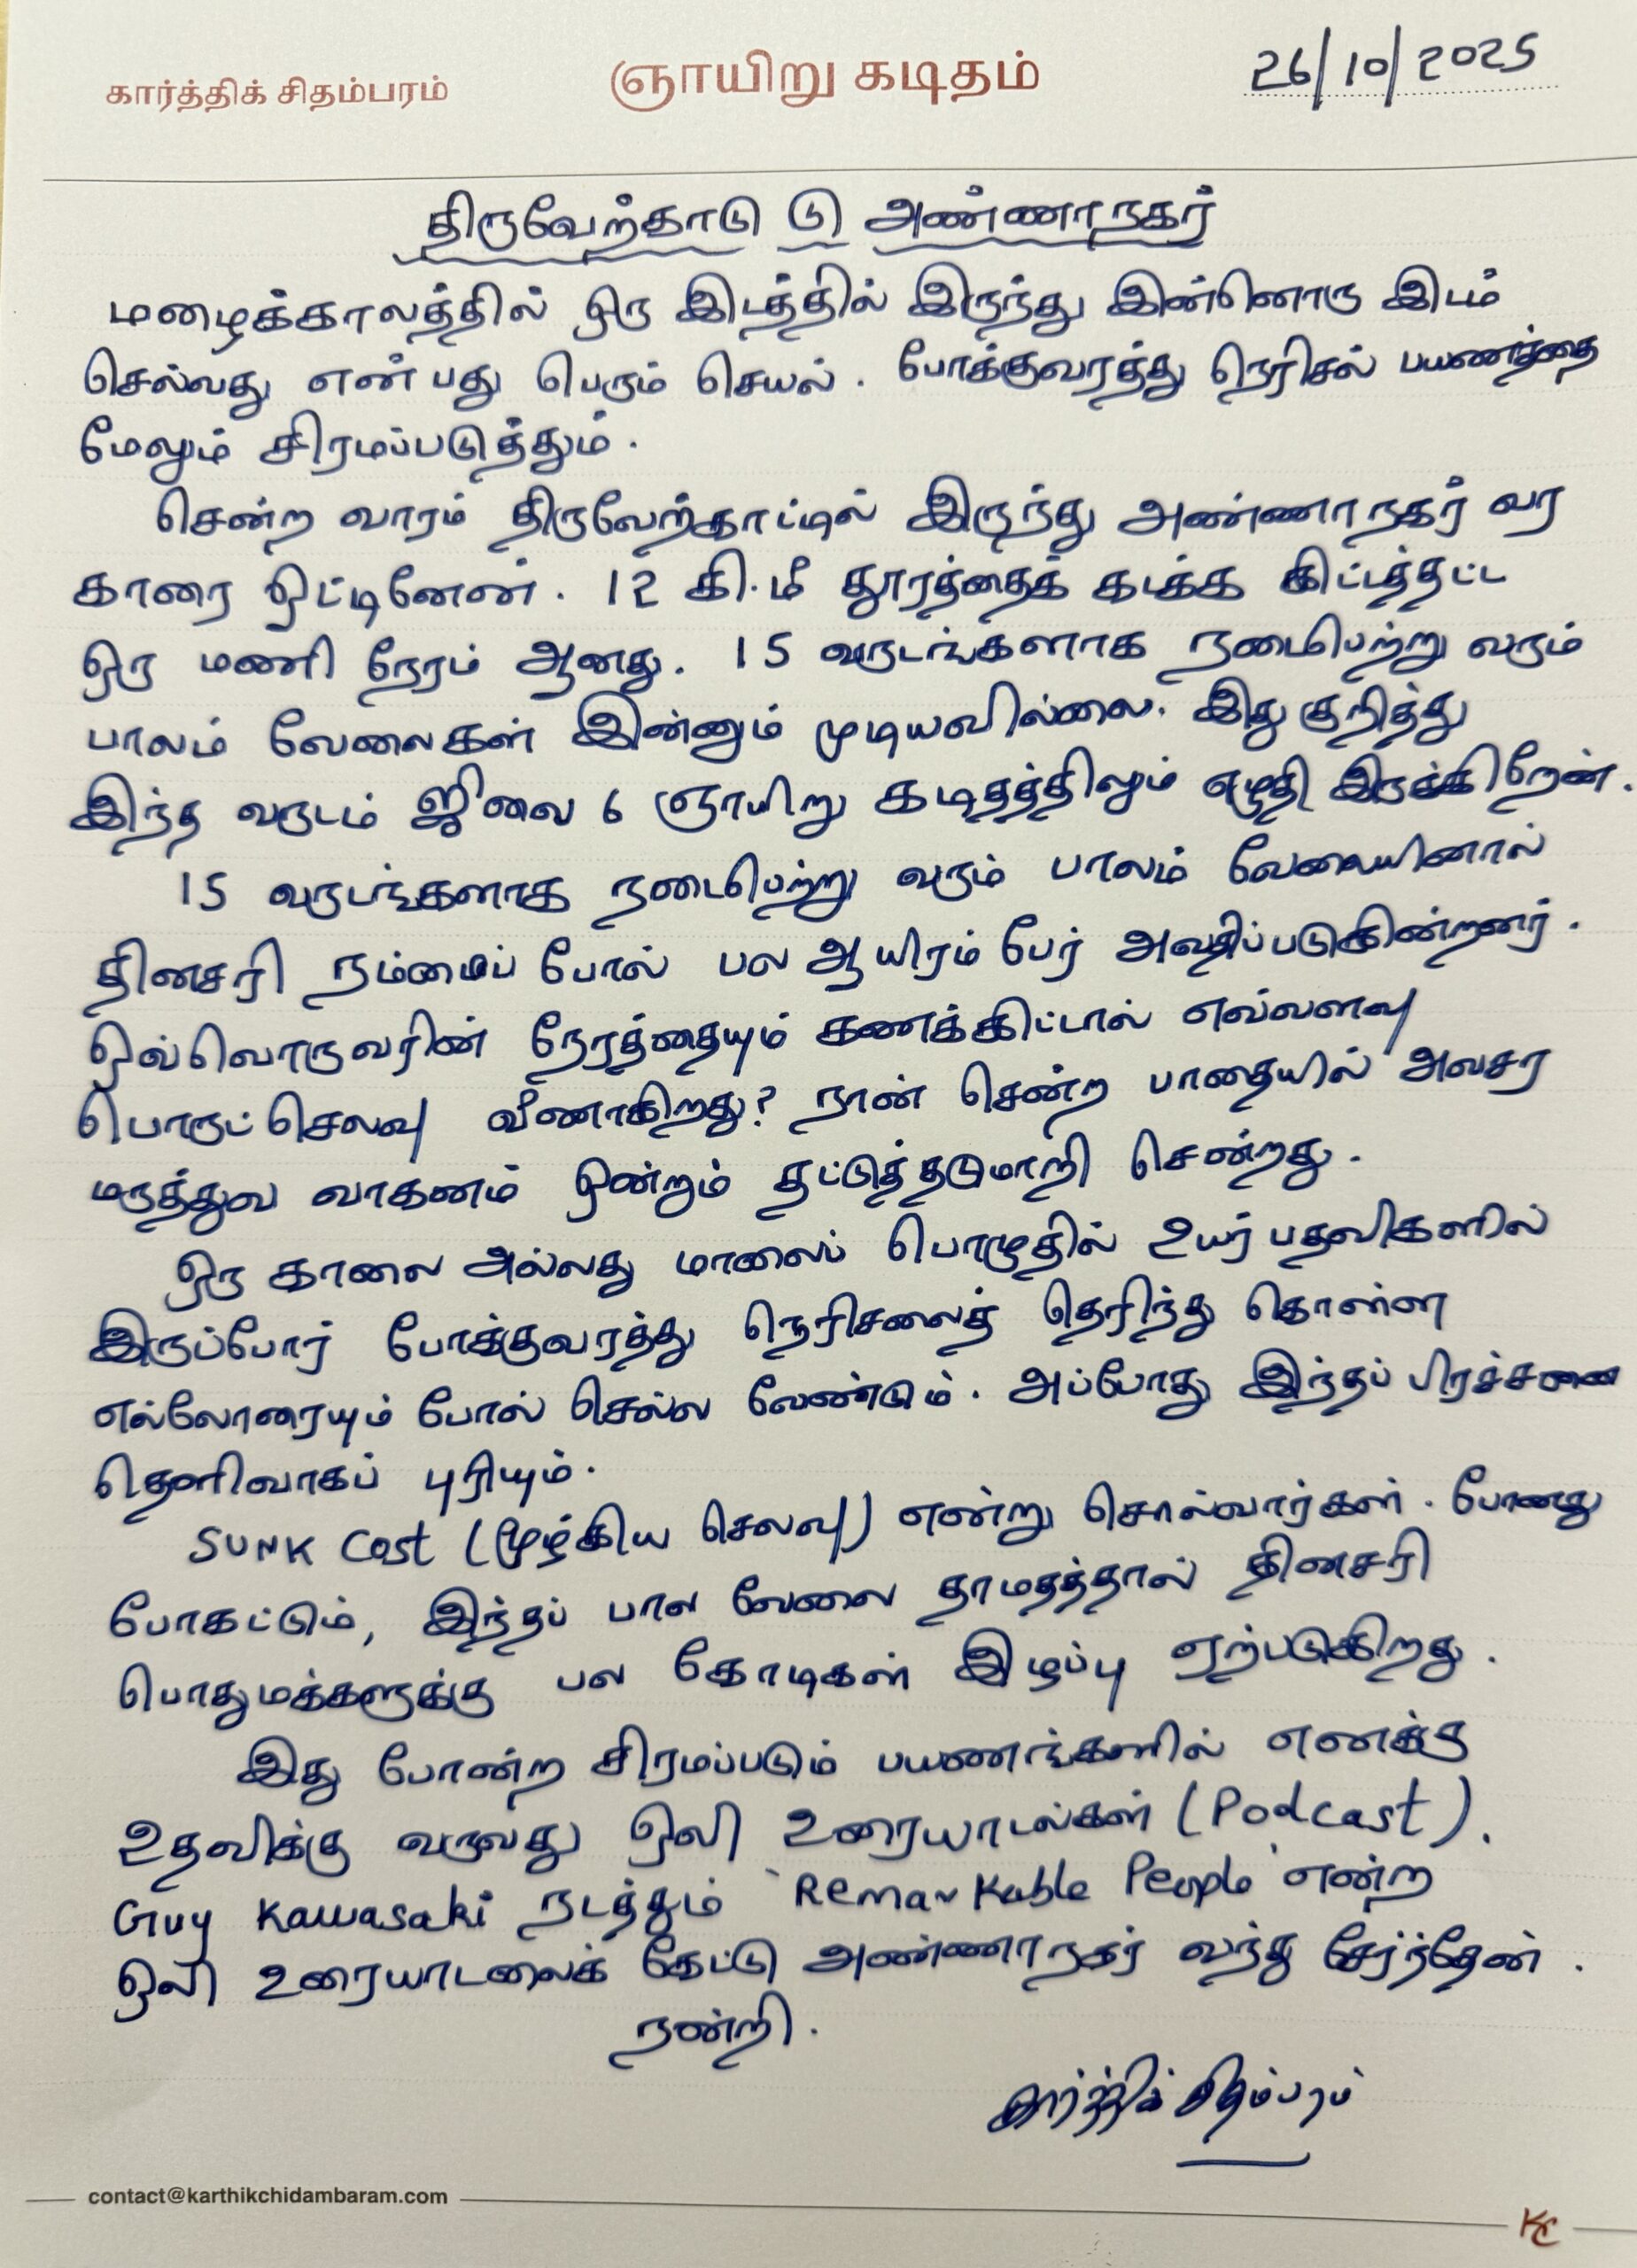 கார்த்திக் சிதம்பரம்
ஞாயிறு கடிதம்
26/10/2025
திருவேற்காடு டு அண்ணாநகர்
மழைக்காலத்தில் ஒரு இடத்தில் இருந்து இன்னொரு இடம்
செல்வது என்பது பெரும் செயல். போக்குவரத்து நெரிசல் பயணத்தை
மேலும் சிரமப்படுத்தும்.
சென்ற வாரம் திருவேற்காட்டில் இருந்து அண்ணாநகர் வர
காரை ஓட்டினேன். 12 கி.மீ தூரத்தைக் கடக்க கிட்டத்தட்ட
ஒரு மணி நேரம் ஆனது. 15 வருடங்களாக நடைபெற்று வரும்
பாலம் வேலைகள் இன்னும் முடியவில்லை. இது குறித்து
இந்த வருடம் ஜுலை 6 ஞாயிறு கடிதத்திலும் எழுதி இருக்கிறேன்.
15 வருடங்களாக நடைபெற்று வரும் பாலம் வேலையினால்
தினசரி நம்மைப் போல் பல ஆயிரம் பேர் அவதிப்படுகின்றனர்.
ஒவ்வொருவரின் நேரத்தையும் கணக்கிட்டால் எவ்வளவு
பொருட்செலவு வீணாகிறது? நான் சென்ற பாதையில் அவசர
மருத்துவ வாகனம் ஒன்றும் தட்டுத்தடுமாறி சென்றது.
ஒரு காலை அல்லது மாலைப் பொழுதில் உயர் பதவிகளில்
இருப்போர் போக்குவரத்து நெரிசலைத் தெரிந்து கொள்ள
எல்லோரையும் போல் செல்ல வேண்டும். அப்போது இந்தப் பிரச்சனை
தெளிவாகப் புரியும்.
SUNK Cost (மூழ்கிய செலவு) என்று சொல்வார்கள். போனது
போகட்டும், இந்தப் பால வேலை தாமதத்தால் தினசரி
பொதுமக்களுக்கு பல கோடிகள் இழப்பு ஏற்படுகிறது.
இது போன்ற சிரமப்படும் பயணங்களில் எனக்கு
உதவிக்கு வருவது ஒலி உரையாடல்கள் (Podcast).
Guy Kawasaki நடத்தும் 'Remarkable People' என்ற
ஒலி உரையாடலைக் கேட்டு அண்ணாநகர் வந்து சேர்ந்தேன்.
நன்றி.
கார்த்திக் சிதம்பரம்
contact@karthikchidambaram.com
KC